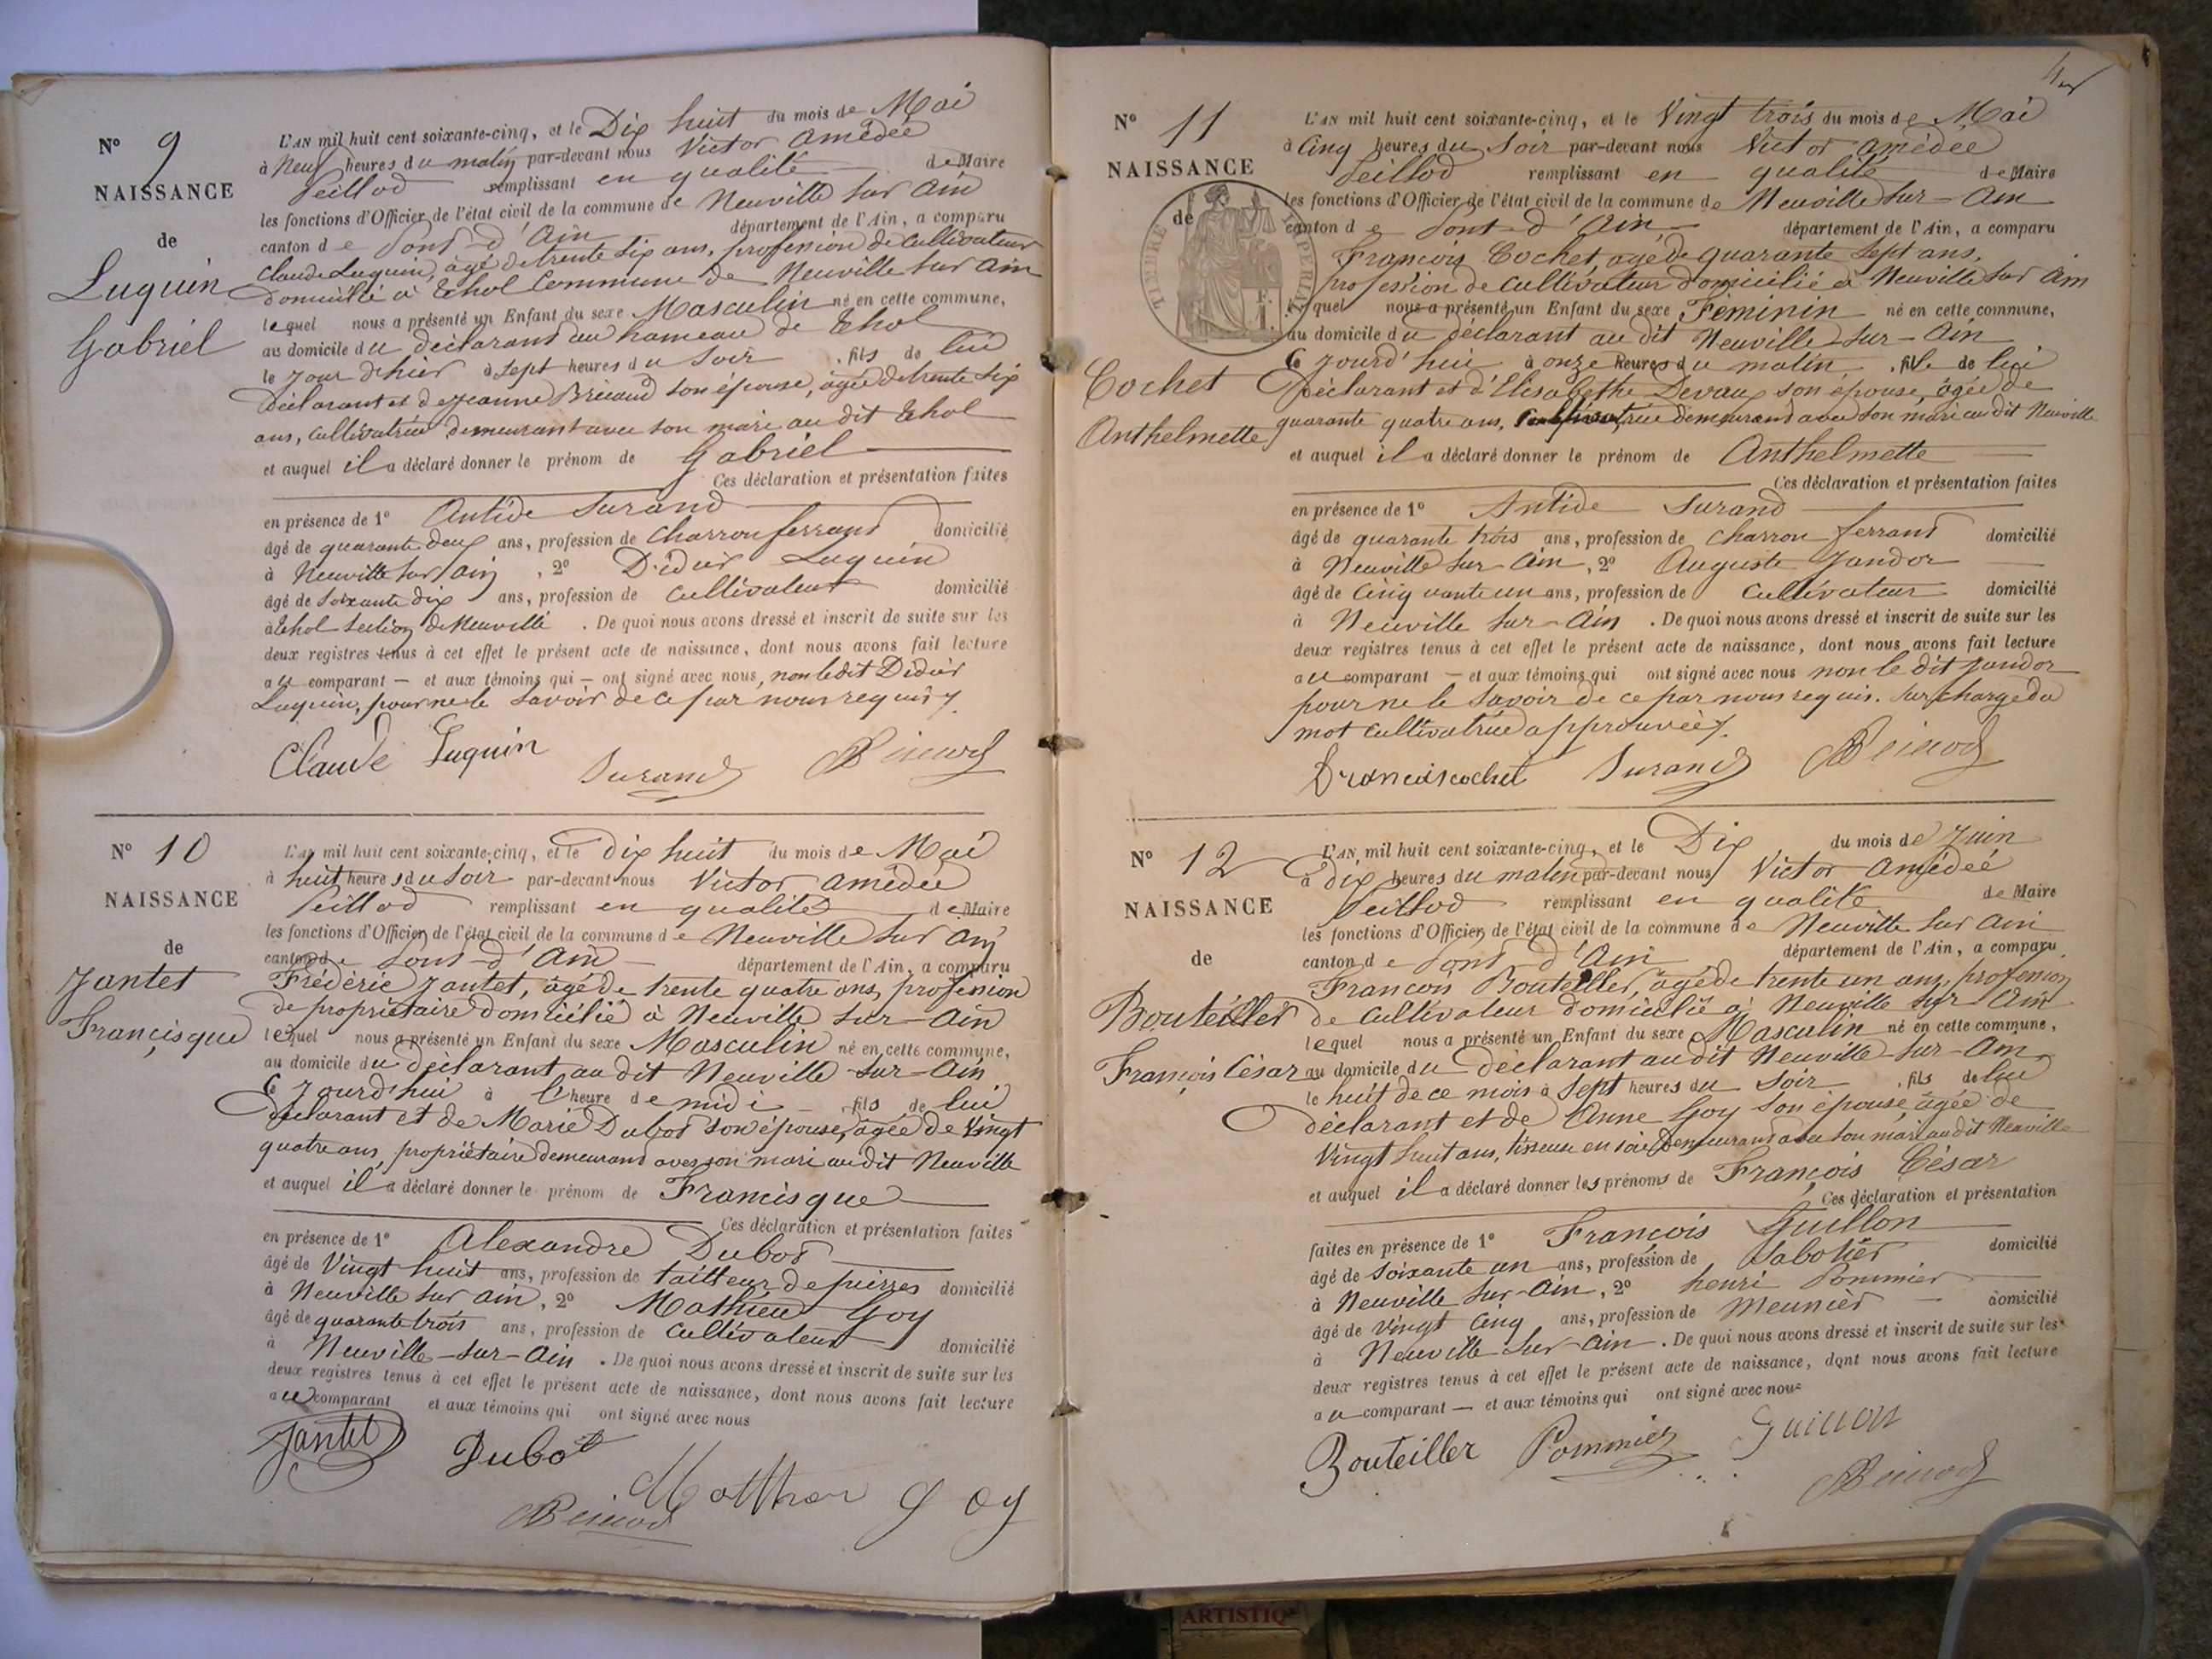 N° 9
NAISSANCE
de
Luquin
Gabriel
L'AN mil huit cent soixante-cinq, et le Dix huit du mois de Mai
à Neuf heures du matin par-devant nous Victor Amédée
Peillod remplissant en qualité de Maire
les fonctions d'Officier de l'état civil de la commune de Neuville sur Ain
canton de Pont-d'Ain département de l'Ain, a comparu
Claude Luquin, âgé de trente six ans, profession de Cultivateur
domicilié à Thol Commune de Neuville sur Ain
lequel nous a présenté un Enfant du sexe Masculin né en cette commune,
au domicile du déclarant au hameau de Thol
le jour d'hier à sept heures du soir, fils de lui
déclarant et de Jeanne son épouse, âgée de trente six
ans, cultivatrice demeurant avec son mari au dit Thol
et auquel il a déclaré donner le prénom de Gabriel
Ces déclaration et présentation faites
en présence de 1° Antide Durand
âgé de quarante deux ans, profession de Charron ferrant domicilié
à Neuville sur Ain, 2° Didier Luquin
âgé de soixante dix ans, profession de Cultivateur domicilié
à Thol section de Neuville. De quoi nous avons dressé et inscrit de suite sur les
deux registres tenus à cet effet le présent acte de naissance, dont nous avons fait lecture
au comparant — et aux témoins qui — ont signé avec nous, non ledit Didier
Luquin, pour ne le savoir de ce par nous requis.
Claude Luquin Durand
N° 10
NAISSANCE
de
Jantet
Françisque
L'AN mil huit cent soixante-cinq, et le dix huit du mois de Mai
à huit heures du soir par-devant nous Victor Amédée
Peillod remplissant en qualité de Maire
les fonctions d'Officier de l'état civil de la commune de Neuville sur Ain
canton de Pont-d'Ain département de l'Ain, a comparu
Frédéric Jantet, âgé de trente quatre ans, profession
de propriétaire domicilié à Neuville sur-Ain
lequel nous a présenté un Enfant du sexe Masculin né en cette commune,
au domicile du déclarant, au dit Neuville-sur-Ain
Ce jourd'hui à l'heure de midi, fils de lui
déclarant et de Marie Dubot son épouse, âgée de Vingt
quatre ans, propriétaire demeurant avec son mari au dit Neuville
et auquel il a déclaré donner le prénom de Francisque
Ces déclaration et présentation faites
en présence de 1° Alexandre Dubot
âgé de Vingt huit ans, profession de tailleur de pierres domicilié
à Neuville sur Ain, 2° Mathieu Goy
âgé de quarante trois ans, profession de Cultivateur domicilié
à Neuville-sur-Ain. De quoi nous avons dressé et inscrit de suite sur les
deux registres tenus à cet effet le présent acte de naissance, dont nous avons fait lecture
au comparant et aux témoins qui ont signé avec nous
Jantet Dubot
Goy
N° 11
NAISSANCE
de
TIMBRE IMPERIAL
Cochet
Anthelmette
L'AN mil huit cent soixante-cinq, et le Vingt trois du mois de Mai
à Cinq heures du Soir par-devant nous Victor Amédée
Peillod remplissant en qualité de Maire
les fonctions d'Officier de l'état civil de la commune de Neuville sur-Ain
canton de Pont-d'Ain, département de l'Ain, a comparu
François Cochet, âgé de quarante sept ans,
profession de cultivateur domicilié à Neuville sur Ain
lequel nous a présenté un Enfant du sexe Féminin né en cette commune,
au domicile du déclarant au dit Neuville-sur-Ain
Ce jourd'hui à onze heures du matin, fille de lui
déclarant et d'Elisabethe Devaux son épouse, âgée de
quarante quatre ans, Cultivatrice demeurant avec son mari au dit Neuville
et auquel il a déclaré donner le prénom de Anthelmette
Ces déclaration et présentation faites
en présence de 1° Antide Durand
âgé de quarante trois ans, profession de Charron ferrant domicilié
à Neuville sur-Ain, 2° Auguste Jandor
âgé de Cinquante un ans, profession de Cultivateur domicilié
à Neuville sur-Ain. De quoi nous avons dressé et inscrit de suite sur les
deux registres tenus à cet effet le présent acte de naissance, dont nous avons fait lecture
au comparant — et aux témoins qui ont signé avec nous non le dit Jandor
pour ne le savoir de ce par nous requis. Surcharge du
mot cultivatrice approuvée.
Francois cochet Durand
N° 12
NAISSANCE
de
Bouteiller
François César
L'AN mil huit cent soixante-cinq, et le Dix du mois de Juin
à dix heures du matin par-devant nous Victor Amédée
Peillod remplissant en qualité de Maire
les fonctions d'Officier de l'état civil de la commune de Neuville sur Ain
canton de Pont-d'Ain département de l'Ain, a comparu
François Bouteiller, âgé de trente un ans, profession
de Cultivateur domicilié à Neuville sur Ain
lequel nous a présenté un Enfant du sexe Masculin né en cette commune,
au domicile du déclarant au dit Neuville-sur-Ain
le huit de ce mois à sept heures du soir, fils de lui
déclarant et de Anne Goy son épouse, âgée de
Vingt huit ans, tisseuse en soie demeurant avec son mari au dit Neuville
et auquel il a déclaré donner les prénoms de François César
Ces déclaration et présentation
faites en présence de 1° François Guillon
âgé de soixante un ans, profession de Sabotier domicilié
à Neuville sur-Ain, 2° henri Pommier
âgé de vingt cinq ans, profession de Meunier domicilié
à Neuville sur-Ain. De quoi nous avons dressé et inscrit de suite sur les
deux registres tenus à cet effet le présent acte de naissance, dont nous avons fait lecture
au comparant — et aux témoins qui ont signé avec nous
Bouteiller Pommier Guillon
ARTISTIQ